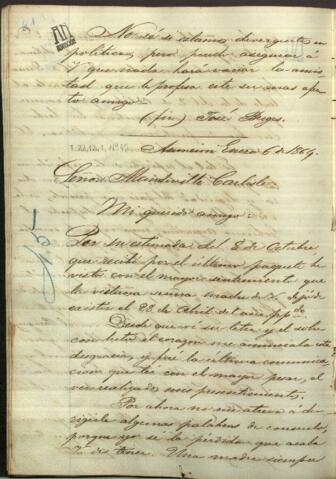 No sé si estamos divergentes en
politica, pero puedo asegurar á
V que nada hará variar la amis
tad que le profesa este su afto
amigo.
(fir) José Berges.
Asuncion Enero 6 de 1869.
Señor Mandeville Carlisle
Mi querido amigo:
Por su estimada del 8 de Octubre
que recibí por el último paquete he
visto con el mayor sentimiento que
la virtuosa señora madre de V. dejó de
existir el 28 de Abril del año ppdo
Desde que vi su letra y el sobre
con luto el corazon me anunciaba esta
desgracia, y fué la última comunica
cion que leí con el mayor pesar, al
ver realizado mis presentimientos.
Por ahora no me atrevo á di
rigirle algunas palabras de consuelo,
porque yo sé la pérdida que acaba
V. de tener. Una madre siempre